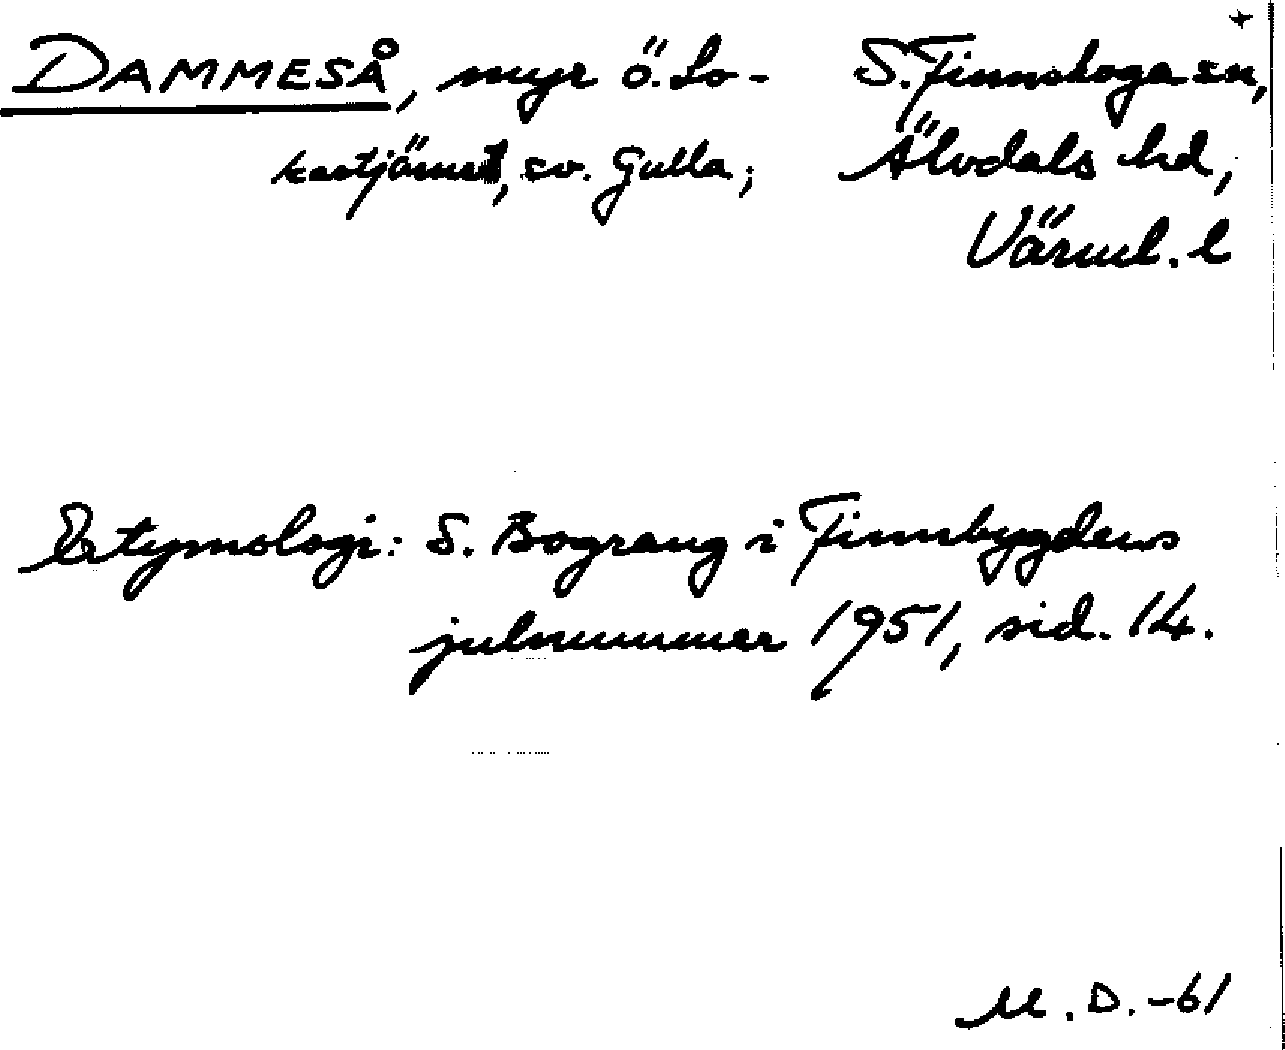 DAMMESÅ, myr ö. Lo- S. Finnskoga sn,
kastjärnet, sv. Gulla; Älvdals hd,
Värml. l
Etymologi: S. Bograng i Finnbygdens
julnummer 1951, sid. 14.
M. D. -61